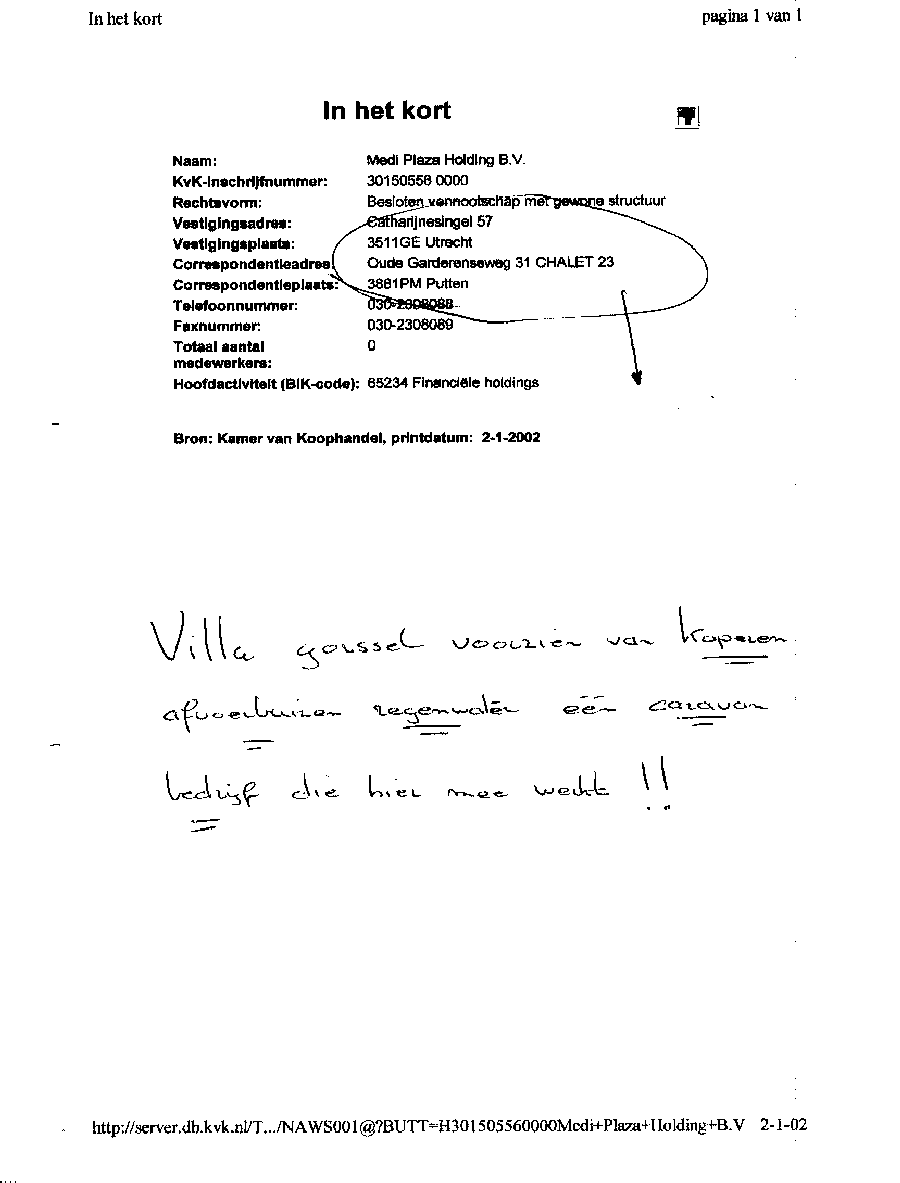 In het kort pagina 1 van 1
In het kort
Naam: Medi Plaza Holding B.V.
KvK-inschrijfnummer: 30150556 0000
Rechtsvorm: Besloten vennootschap met gewone structuur
Vestigingsadres: Catharijnesingel 57
Vestigingsplaats: 3511GE Utrecht
Correspondentieadres: Oude Garderenseweg 31 CHALET 23
Correspondentieplaats: 3881PM Putten
Telefoonnummer: 030-2308088
Faxnummer: 030-2308089
Totaal aantal 0
medewerkers:
Hoofdactiviteit (BIK-code): 65234 Financiële holdings
Bron: Kamer van Koophandel, printdatum: 2-1-2002
Villa gorssel voorzien van koperen
afvoerbuizen regenwater één caravan
bedrijf die hier mee werkt !!
http://server.db.kvk.nl/T.../NAWS001@?BUTT=H301505560000Medi+Plaza+Holding+B.V 2-1-02